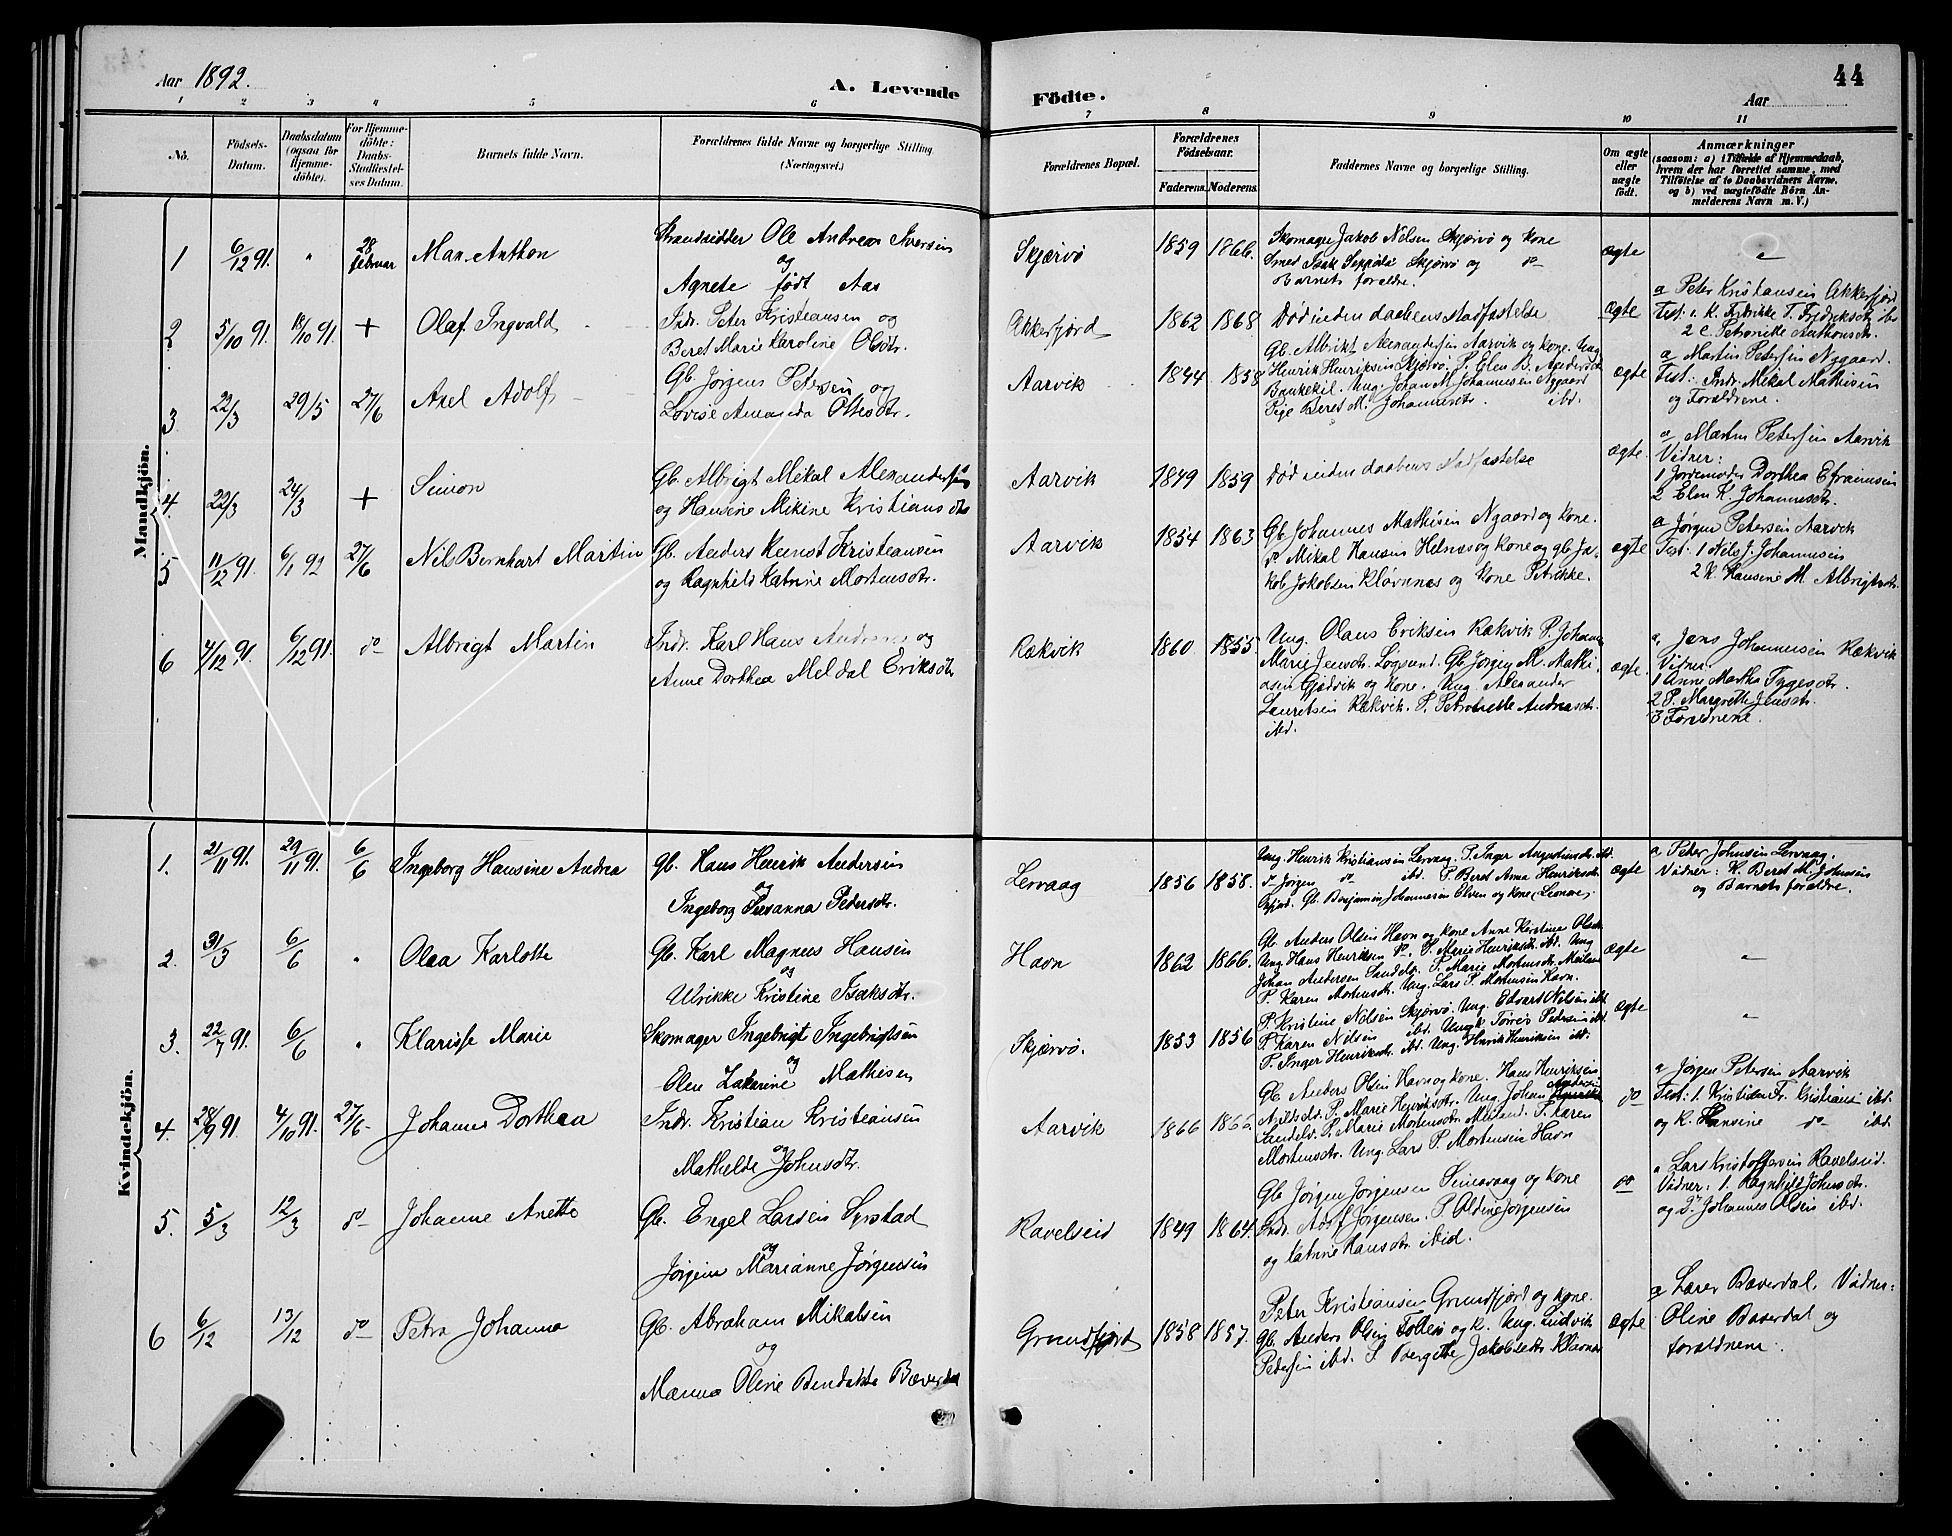 Aar 1892.
A. Levende Födte.
44
Aar
1 2 3 4 5 6 7 8 9 10 11
No.
Födsels-Datum.
Daabsdatum (ogsaa for Hjemme-döbte).
For Hjemme-döbte: Daabs-Stadfæstel-ses Datum.
Barnets fulde Navn.
Forældrenes fulde Navne og borgerlige Stilling (Næringsvei.)
Forældrenes Bopæl.
Forældrenes Födselsaar.
Faderens. Moderens.
Faddernes Navne og borgerlige Stilling.
Om ægte eller uægte födt.
Anmærkninger
(saasom: a) i Tilfælde af Hjemmedaab,
hvem der har forrettet samme, med
Tilföielse af to Daabsvidners Navne,
og b) ved uægtefödte Börn An-
melderens Navn m. V.)
Mandkjön.
1 6/12 91. " 28 februar
Anthon
Strandsidder Ole Andreas Iversen
og
Agnete født Aas
Skjærvö 1859 1866.
Skomager Jakob Nilsen Skjærvö og Kone
Smed Isak Seppälä Skjærvö og do
Barnets forældre.
ægte
2 5/10 91. 18/10 91. +
Olaf Ingvald
Indr. Peter Kristiansen og
Beret Marie Karoline Olsdtr.
Akkerfjord 1862 1868
Död inden daabens stadfæstelse
ægte
a Peter Kristiansen Akkerfjord
Test: 1. K. Fredrikke T. Fredriksdtr ibd
2 C. Petronille Anthonsdtr.
3 22/3 29/5 27/6
Axel Adolf
Gb. Jörgen Petersen og
Lovise Amanda Olsdtr.
Aarvik 1844 1858
Gb. Albrikt Alexandersen Aarvik og Kone. Ung
Henrik Henriksen Skjærvö. P. Elen B. Andersdtr
Ung. Johan M. Johannesen Nygaard
Pige Beret M. Johannesdtr. ibd.
ægte
a Martin Petersen Nygaard.
Test: Indr. Mikal Mathisen
og Forældrene.
4. 22/3 24/3 +
Simon
Gb. Albrigt Mikal Alexandersen
og Hansine Mikine Kristiansdtr
Aarvik 1849 1859
död inden daabens stadfæstelse
ægte.
a Martin Petersen Aarvik
Vidner:
1 Jordemoder Dorthea Efraimsen
2 Elen K. Johannesdtr.
5 11/12 91. 6/1 92 27/6
Nils Bernhart Martin
Gb. Anders Kunst Kristiansen
og Ragnhild Katrine Mortensdtr.
Aarvik 1854 1863
Gb. Johannes Mathisen Ngaard og Kone.
do Mikal Hansen Helnes og Kone og gb. Ja-
kob Jakobsen Klövnnes og Kone Petrikke.
ægte
a Jörgen Petersen Aarvik
Test: 1 Nils J. Johannesen
2 K. Hansine M. Albrigtsdtr.
6 4/12 91. 6/12 91. do
Albrigt Martin
Indr. Karl Hans Andreas og
Anne Dorthea Meldal Eriksdtr
Rækvik 1860 1855
Ung. Olaus Eriksen Rækvik P. Johanne
Marie Jensdtr. Lögsund. Gb. Jörgen M. Mathi-
asen Gjødvik og Kone. Ung Alexander
Lauritsen Rækvik. P. Petronelle Andreasdtr.
ibd.
ægte.
a. Jens Johannesen Rækvik
Vidner:
1 Anne Martha Tygesdtr.
2 P. Margrethe Jensdtr.
3 Forældrene.
Kvindekjön.
1. 21/11 91. 29/11 91. 6/6
Ingeborg Hansine Andrea
Gb. Hans Henrik Andersen
og
Ingeborg Susanna Pedersdtr.
Lervaag 1856 1858.
Ung. Henrik Kristiansen Lervaag. P. Inger Augustinsdtr. ibd.
do Jörgen do ibd. P. Beret Anna Henriksdtr.
Gb. Benjamin Johannesen Elven og Kone,
ægte
a Peter Johnsen Lervaag.
Vidner: K. Beret M. Johnsen
og Barnets forældre.
2. 31/3 6/6 "
Olea Karlotte
Gb. Karl Magnus Hansen
og
Ulrikke Kristine Isaksdtr.
Havn 1862 1866.
Gb. Anders Olsen Havn og Kone Anne Kristine Olsdtr
Ung. Hans Henriksen P. Marie Henriksdtr. ibd. Ung
Johan Andersen P. Marie Mortensdtr. Meiland
P. Karen Mortensdtr. Ung. Lars P. Mortensen Havn.
ægte
"
3. 22/7 91. 6/6 "
Klarisse Marie
Skomager Ingebrigt Ingebrigtsen
og
Elen Zakarine Mathisen
Skjærvö. 1853 1856
P. Kristine Nilsen Skjærvö. Ung. Edvart Nilsen ibd.
P. Karen Nilsen ibd. Ungk Torres Pedersen ibd.
P. Inger Henriksdtr. ibd. Ung. Henrik Henriksen ibd.
ægte
"
4. 28/9 91. 4/10 91. 27/6
Johanne Dorthea
Indr. Kristian Kristiansen
og
Mathilde Johnsdtr.
Aarvik 1866 1866.
Gb. Anders Olsen Havn og Kone. Hans Henriksen
P. Marie Henriksdtr. Ung. Johan Andersen
P. Marie Mortensdtr. Meiland. P. Karen
Mortensdtr. Ung. Lars P. Mortensen Havn
do
a Jörgen Petersen Aarvik
Test: 1. Kristian Fr. Kristiansen ibd.
og K. Hansine do ibd.
5. 5/3 12/3 do
Johanne Anette
Gb. Engel Larsen Syrstad
og
Jörgine Marianne Jörgensen
Ravelseid 1849 1864.
Gb. Jörgen Jörgensen Simavaag og Kone
Indr. Adolf Jörgensen. P. Aldine Jörgensen
og Katrine Hansdtr. ibid.
do
a Lars Kristoffersen Ravelseid.
Vidner: 1. Ragnhild Johnsdtr.
og 2. Johannes Olsen ibd.
6 6/12 13/12 do
Petra Johanna
Gb. Abraham Mikalsen
og
Manna Oline Bendikte Bæverdal
Grundfjord 1858 1857.
Peter Kristiansen Grundfjord og Kone.
Gb. Anders Olsen Follesö og K. Ung. Ludvik
Pedersen ibd. P. Bergitte Jakobsdtr. Klövnes
ægte
a Lærer Bæverdal. Vidner:
Oline Bæverdal og
forældrene.